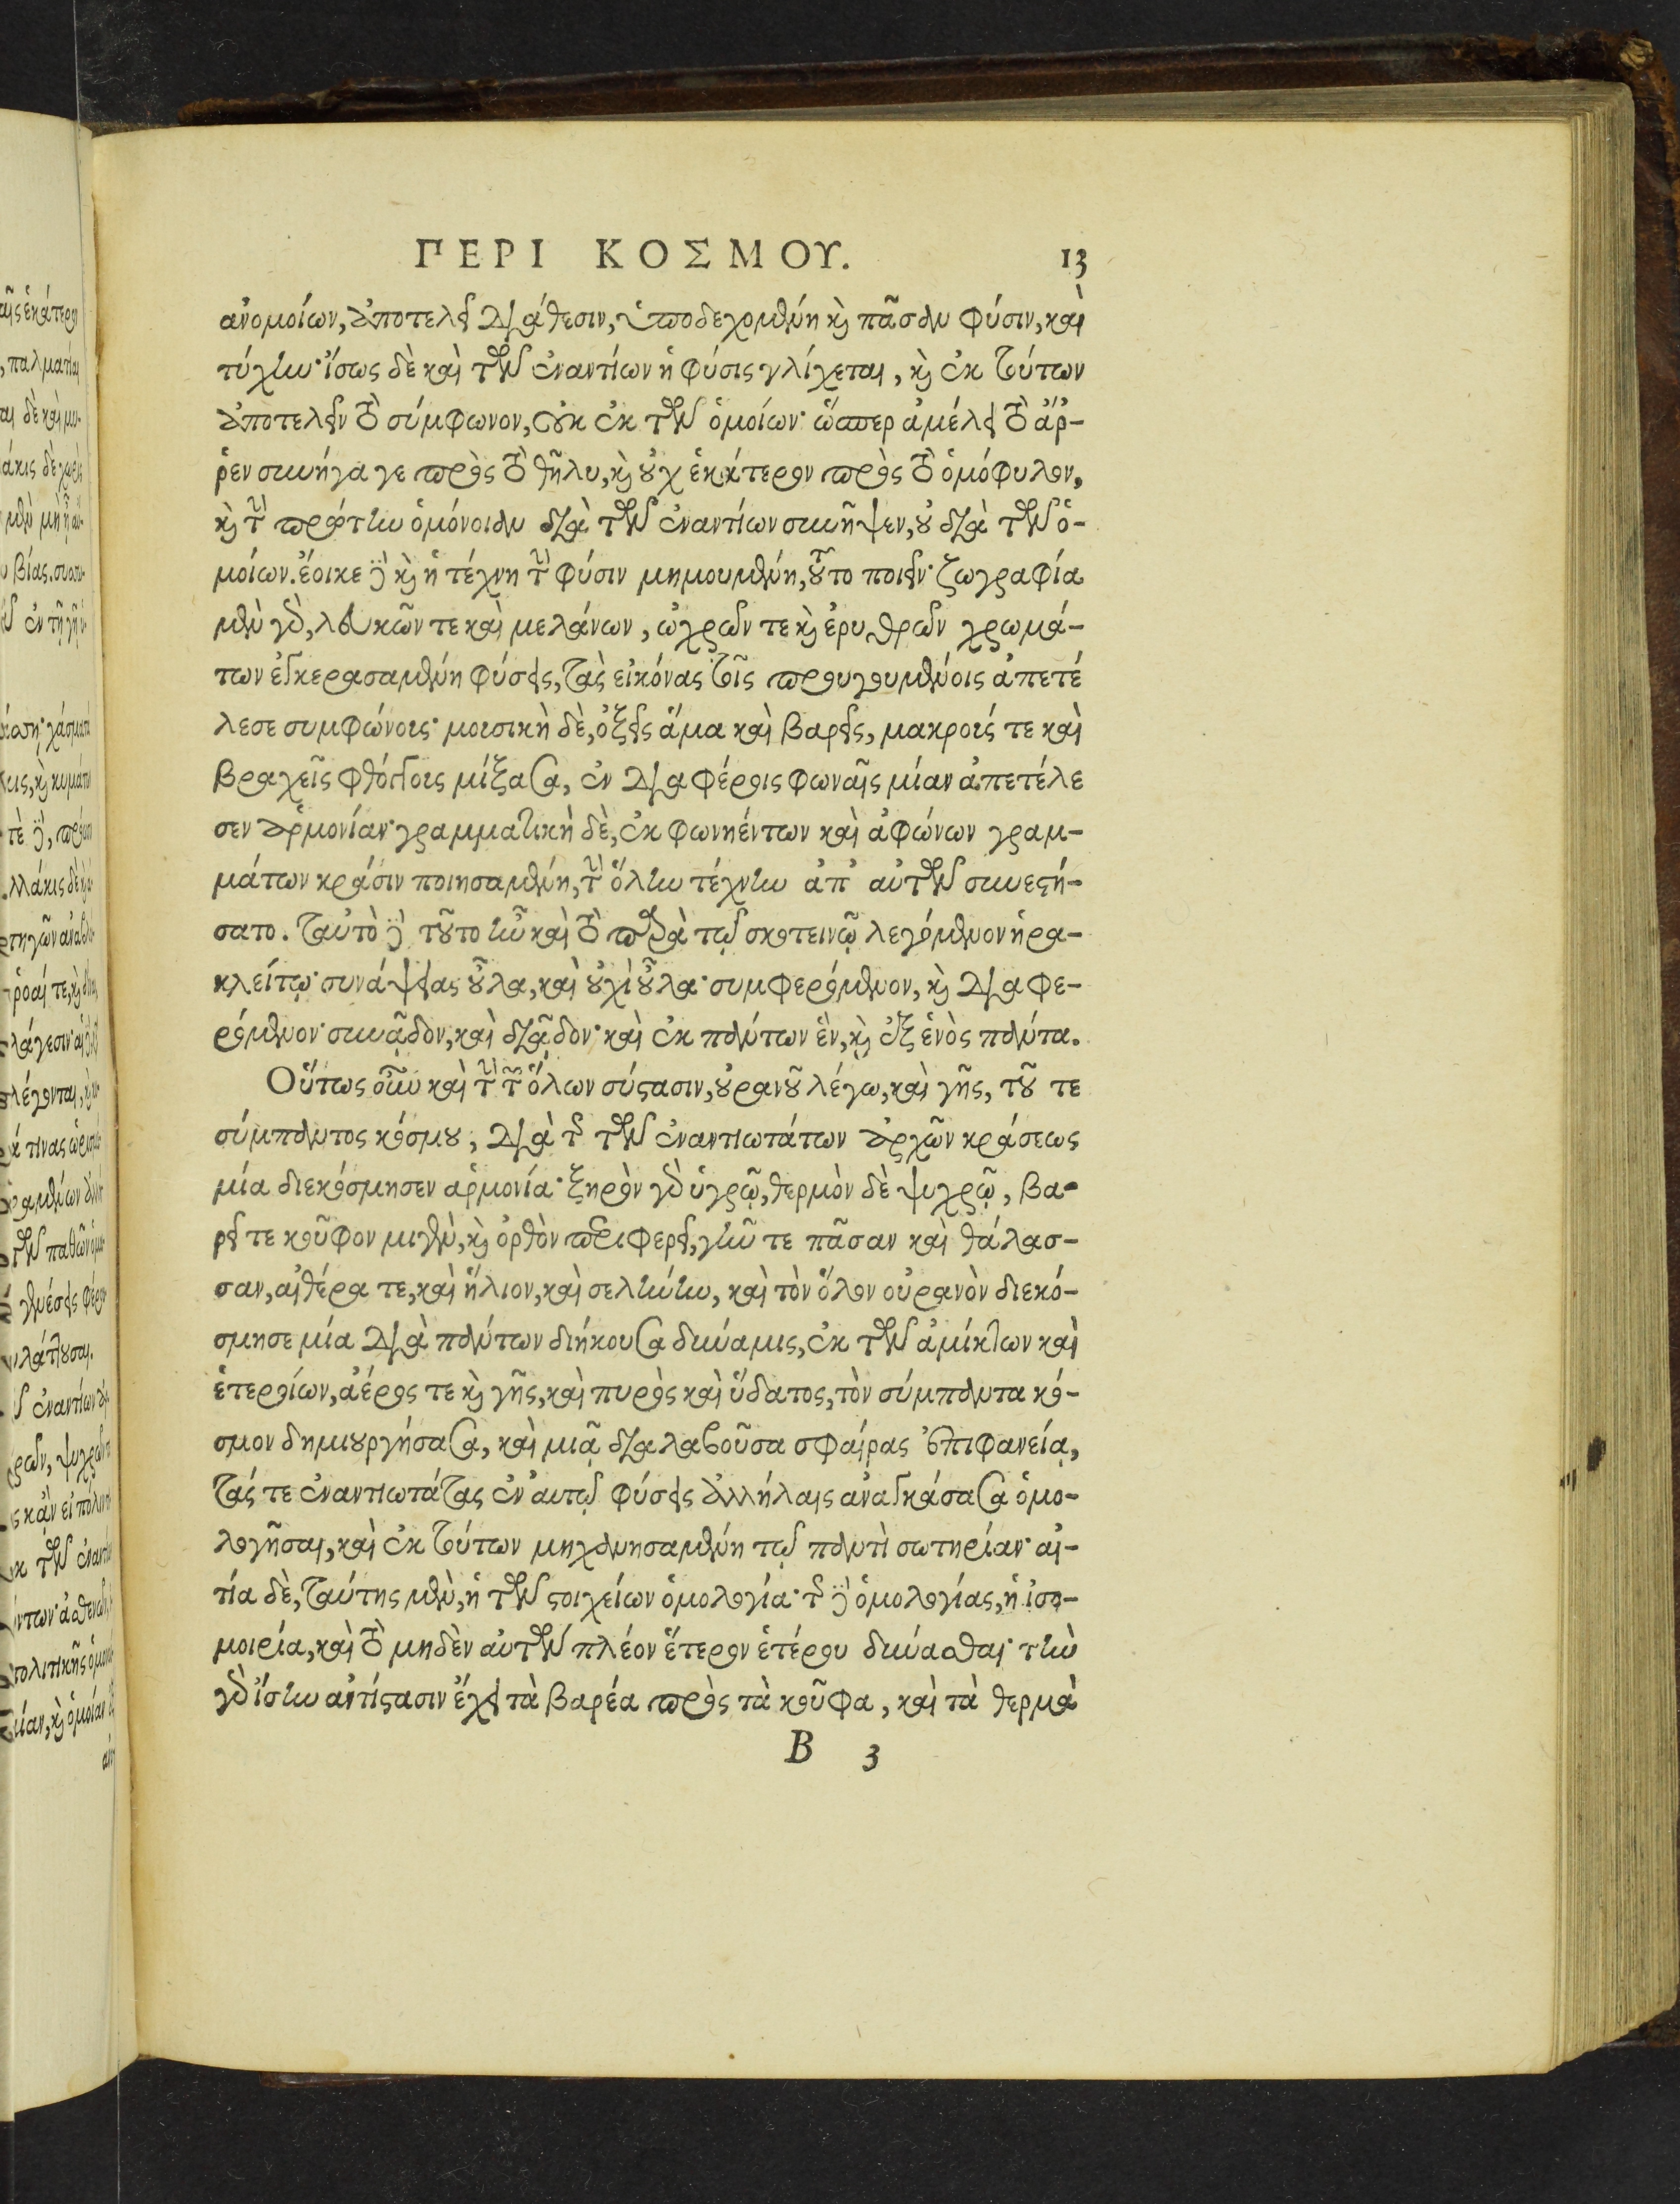 ΠΕΡΙ ΚΟΣΜΟΥ. 13
ἀνομοίων, ἀποτελεῖ διάθεσιν, ὑποδεχομένη καὶ πᾶσαν φύσιν, καὶ
τύχην· ἴσως δὲ καὶ τῶν ἐναντίων ἡ φύσις γλίχεται, καὶ ἐκ τούτων
ἀποτελεῖν τὸ σύμφωνον, οὐκ ἐκ τῶν ὁμοίων· ὥσπερ ἀμέλει τὸ ἄρ-
ῥεν συνήγαγε πρὸς τὸ θῆλυ, καὶ οὐχ ἑκάτερον πρὸς τὸ ὁμόφυλον,
καὶ τὴν πρώτην ὁμόνοιαν διὰ τῶν ἐναντίων συνῆψεν, οὐ διὰ τῶν ὁ-
μοίων. ἔοικε δὲ καὶ ἡ τέχνη τὴν φύσιν μημουμένη, τοῦτο ποιεῖν· ζωγραφία
μὲν γὰρ, λευκῶν τε καὶ μελάνων, ὠχρῶν τε καὶ ἐρυθρῶν χρωμά-
των ἐγκερασαμένη φύσεις, τὰς εἰκόνας τοῖς προηγουμένοις ἀπετέ
λεσε συμφώνους· μουσικὴ δὲ, ὀξεῖς ἅμα καὶ βαρεῖς, μακρούς τε καὶ
βραχεῖς φθόγγους μίξασα, ἐν διαφόροις φωναῖς μίαν ἀπετέλε
σεν ἁρμονίαν· γραμματικὴ δὲ, ἐκ φωνηέντων καὶ ἀφώνων γραμ-
μάτων κράσιν ποιησαμένη, τὴν ὅλην τέχνην ἀπ' αὐτῶν συνεστή-
σατο. ταὐτὸ δὲ τοῦτο ἦν καὶ τὸ παρὰ τῷ σκοτεινῷ λεγόμενον ἡρα-
κλείτῳ· συνάψειας οὖλα, καὶ οὐχὶ οὖλα· συμφερόμενον, καὶ διαφε-
ρόμενον· συνᾷδον, καὶ διᾷδον· καὶ ἐκ πάντων ἓν, καὶ ἐξ ἑνὸς πάντα.
Οὕτως οὖν καὶ τὴν τῶν ὅλων σύστασιν, οὐρανοῦ λέγω, καὶ γῆς, τοῦ τε
σύμπαντος κόσμου, διὰ τῆς τῶν ἐναντιωτάτων ἀρχῶν κράσεως
μία διεκόσμησεν ἁρμονία· ξηρὸν γὰρ ὑγρῷ, θερμὸν δὲ ψυχρῷ, βα-
ρεῖ τε κοῦφον μιγὲν, καὶ ὀρθὸν περιφερεῖ, γῆν τε πᾶσαν καὶ θάλασ-
σαν, αἰθέρα τε, καὶ ἥλιον, καὶ σελήνην, καὶ τὸν ὅλον οὐρανὸν διεκό-
σμησε μία διὰ πάντων διήκουσα δύναμις, ἐκ τῶν ἀμίκτων καὶ
ἑτεροίων, ἀέρος τε καὶ γῆς, καὶ πυρὸς καὶ ὕδατος, τὸν σύμπαντα κό-
σμον δημιουργήσασα, καὶ μιᾷ διαλαβοῦσα σφαίρας ἐπιφανείᾳ,
τάς τε ἐναντιωτάτας ἐν αὐτῷ φύσεις ἀλλήλαις ἀναγκάσασα ὁμο-
λογῆσαι, καὶ ἐκ τούτων μηχανησαμένη τῷ παντὶ σωτηρίαν· αἰ-
τία δὲ, ταύτης μὲν, ἡ τῶν στοιχείων ὁμολογία· τῆς δὲ ὁμολογίας, ἡ ἰσο-
μοιρία, καὶ τὸ μηδὲν αὐτῶν πλέον ἕτερον ἑτέρου δύνασθαι· τὴν
γὰρ ἴσην ἀντίστασιν ἔχει τὰ βαρέα πρὸς τὰ κοῦφα, καὶ τὰ θερμὰ
B 3